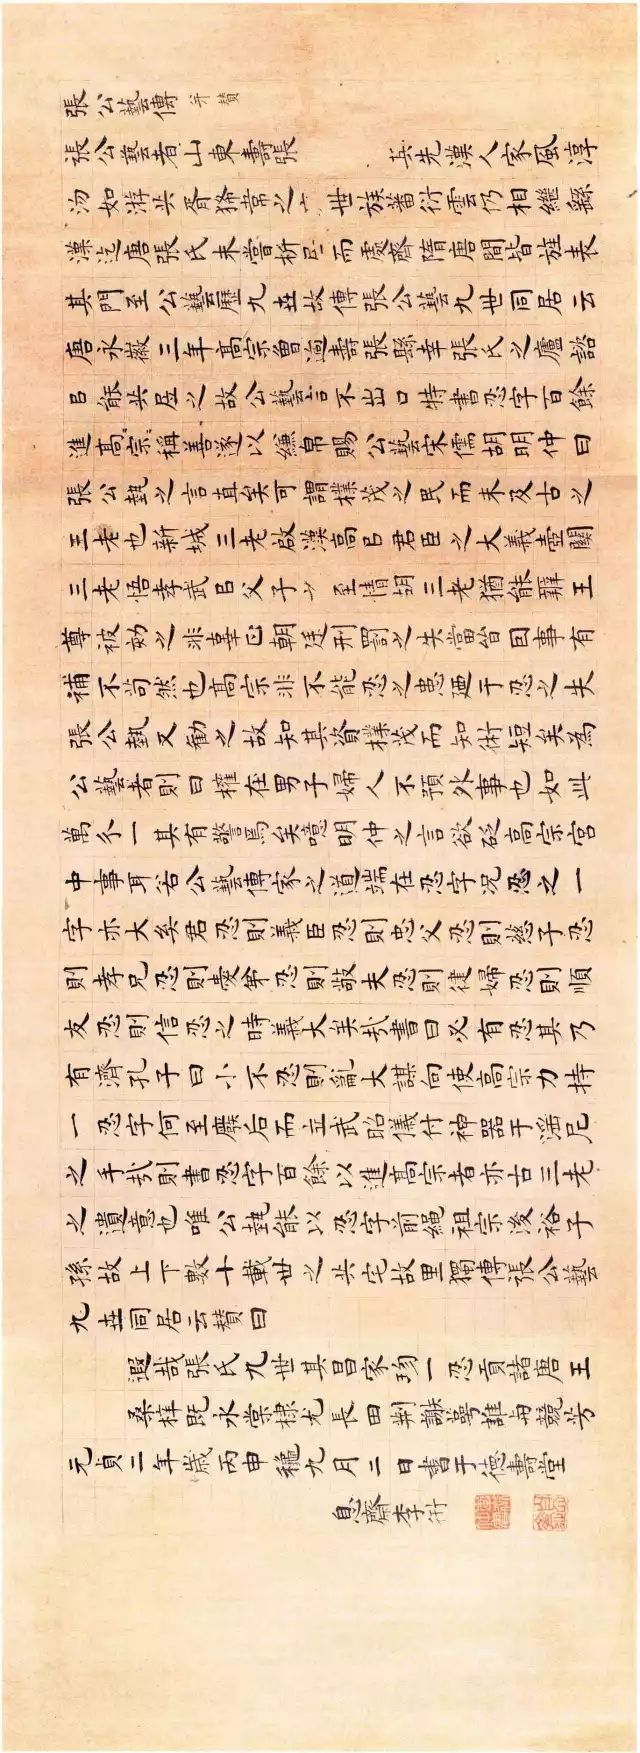 張公藝傳 并贊
張公藝者山東壽張 其先漢人家風淳
沕如游共胥常之世族蕃衍雲仍相繼緜
漢迄唐張氏未嘗析居而處齊隋唐間皆旌表
其門至公藝歷九世故傳張公藝九世同居云
唐永徽三年高宗曾過壽張縣幸張氏之廬諮
㠯能共居之故公藝言不出口特書忍字百餘
進高宗稱善遂以縑帛賜公藝宋儒胡明仲曰
張公藝之言直矣可謂樸茂之民而未及古之
三老也新城三老啟漢高㠯君臣之大義壺關
三老悟孝武㠯父子之至情胡三老猶能辯王
尊被劾之非辜正朝廷刑罰之失當皆因事有
補不苟然也高宗非不能忍之患廼于忍之失
張公藝又勸之故知其資樸茂而知術短矣為
公藝者則曰權在男子婦人不預外事也如此
萬分一其有警焉矣噫明仲之言欲砭高宗宮
中事耳若公藝傳家之道端在忍字況忍之一
字亦大矣君忍則義臣忍則忠父忍則慈子忍
則孝兄忍則愛弟忍則敬夫忍則徤婦忍則順
友忍則信忍之時義大矣哉書曰必有忍其乃
有濟孔子曰小不忍則亂大謀向使高宗力持
一忍字何至廢后而立武昭儀付神器于淫尼
之手哉則書忍字百餘以進高宗者亦古三老
之遺意也唯公藝能以忍字前繩祖宗後裕子
孫故上下數十載世之共宅故里獨傳張公藝
九世同居云贊曰
遐哉張氏九世其昌家珍一忍貢諸唐王
桑梓既永棠棣尤長田荆謝萼誰與競芳
元貞二年歲丙申穐九月二日書于德壽堂
息齋李衎